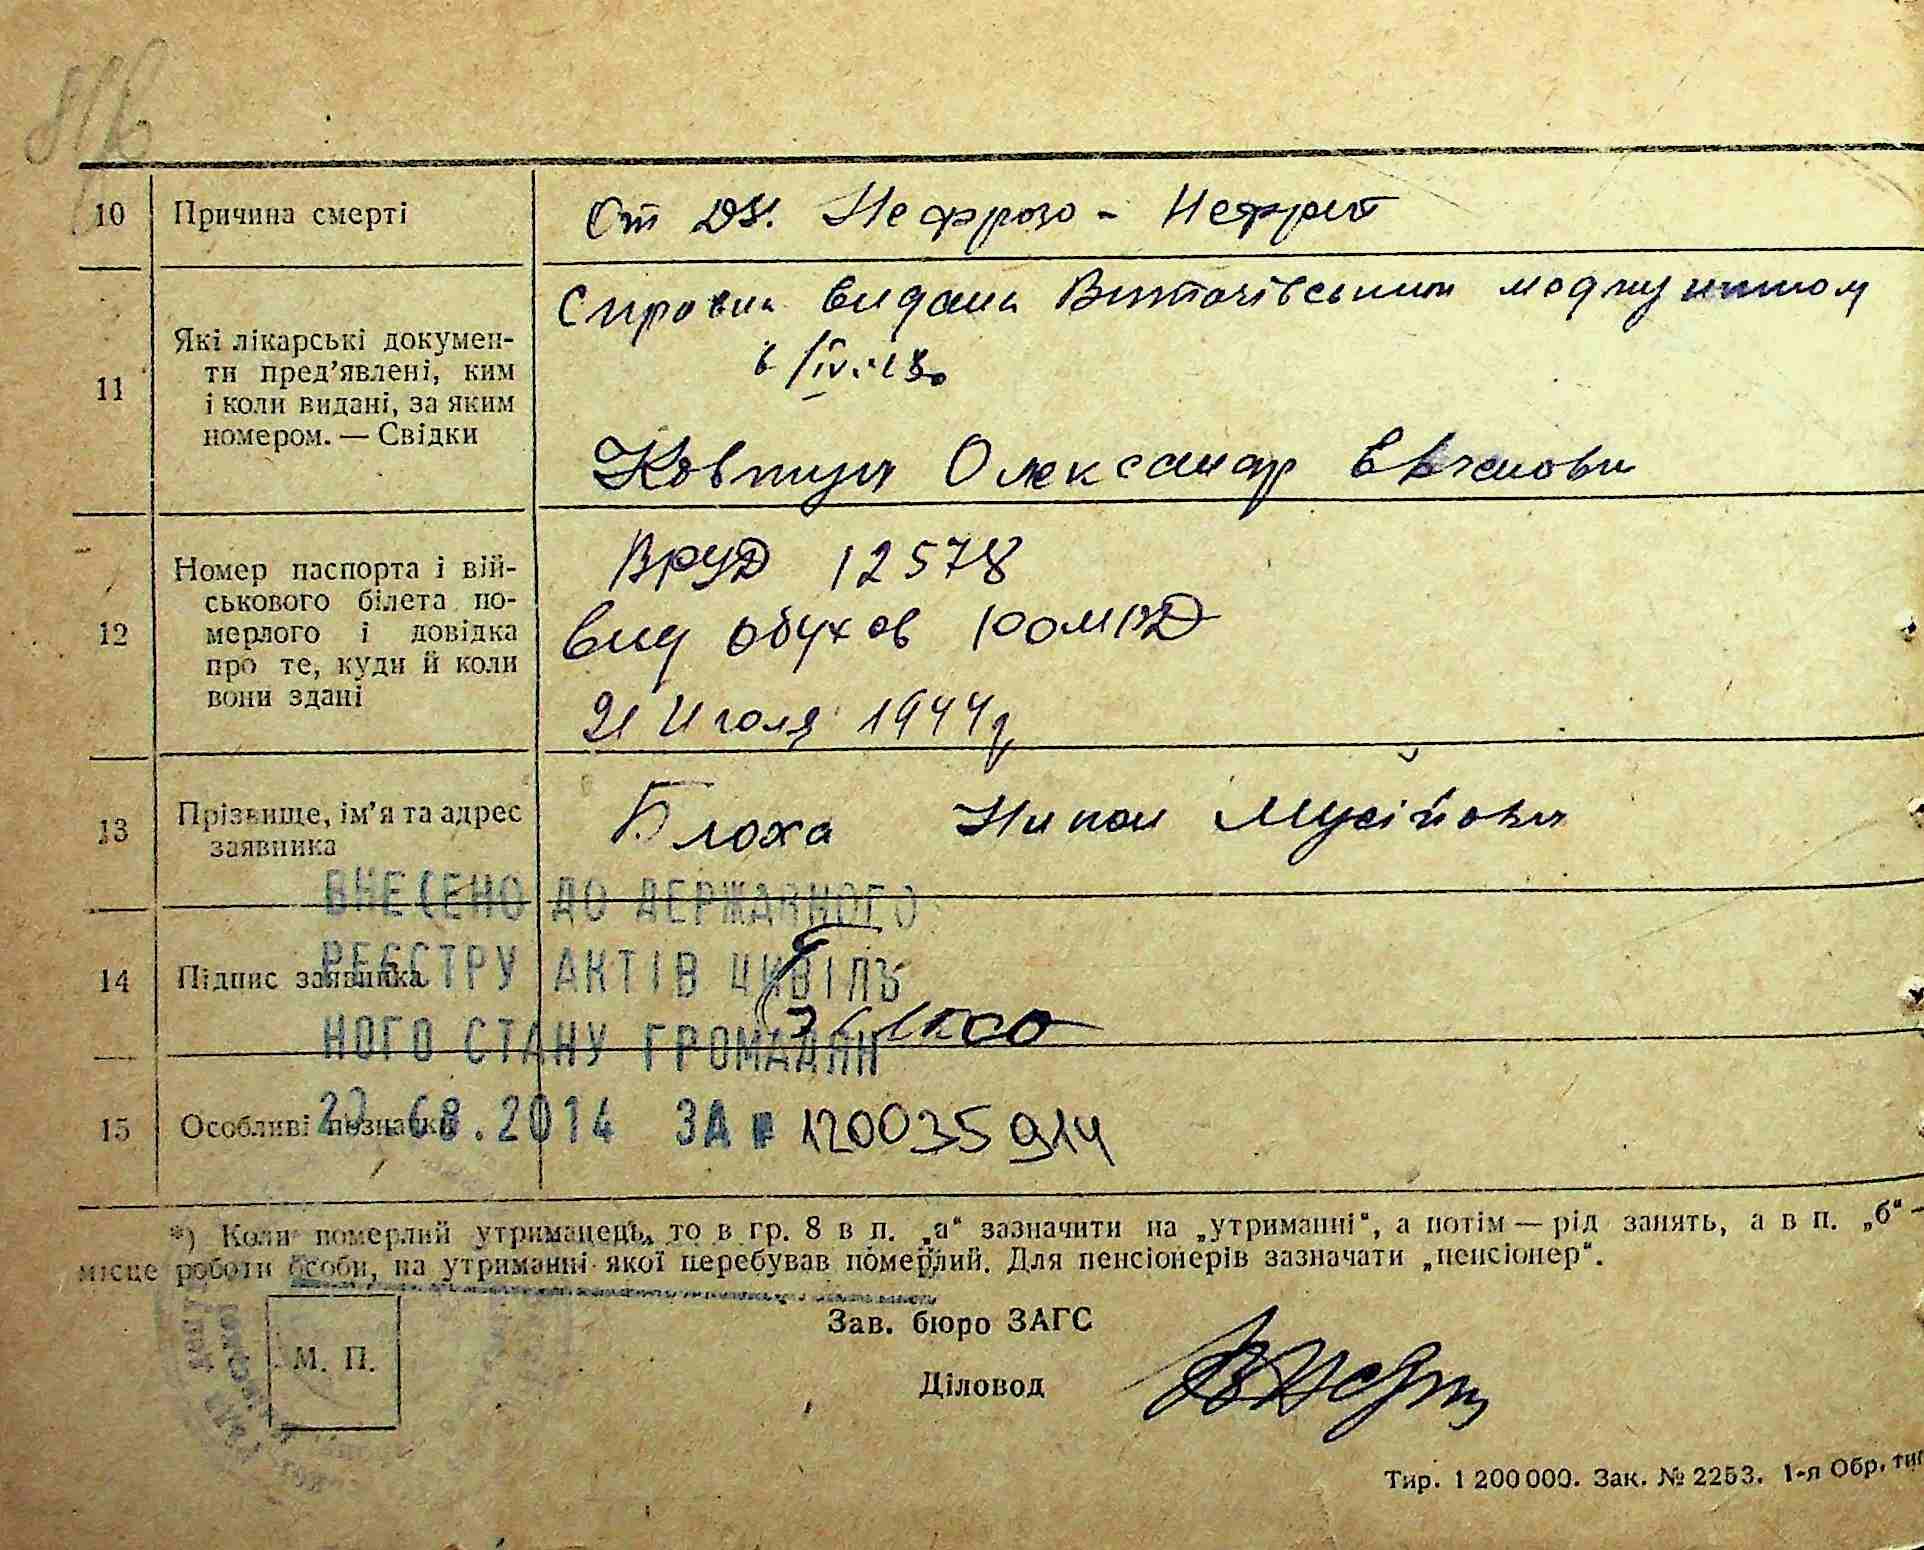 10 Причина смерті
От Нефрозо - Нефрит
11 Які лікарські докумен-
ти пред’явлені, ким
і коли видані, за яким
номером. — Свідки
видана Витачівським медпунктом
6/IV.48.
Ковтун Олександр
12 Номер паспорта і вій-
ськового білета по-
мерлого і довідка
про те, куди й коли
вони здані
12578
вид Обухов РОМВД
21 Июля 1944 г
13 Прізвище, ім’я та адрес
заявника
Блоха Мусійович
ВНЕСЕНО ДО ДЕРЖАВНОГО
14 Підпис заявника
РЕЄСТРУ АКТІВ ЦИВІЛЬ
НОГО СТАНУ ГРОМАДЯН
15 Особливі познаки
27.08.2014 ЗА № 120035914
*) Коли померлий утриманець, то в гр. 8 в п. „а“ зазначити на „утриманні“, а потім — рід занять, а в п. „б“ -
місце роботи особи, на утриманні якої перебував померлий. Для пенсіонерів зазначати „пенсіонер“.
Зав. бюро ЗАГС
М. П.
Діловод
Тир. 1 200 000. Зак. № 2253. 1-я Обр. тип